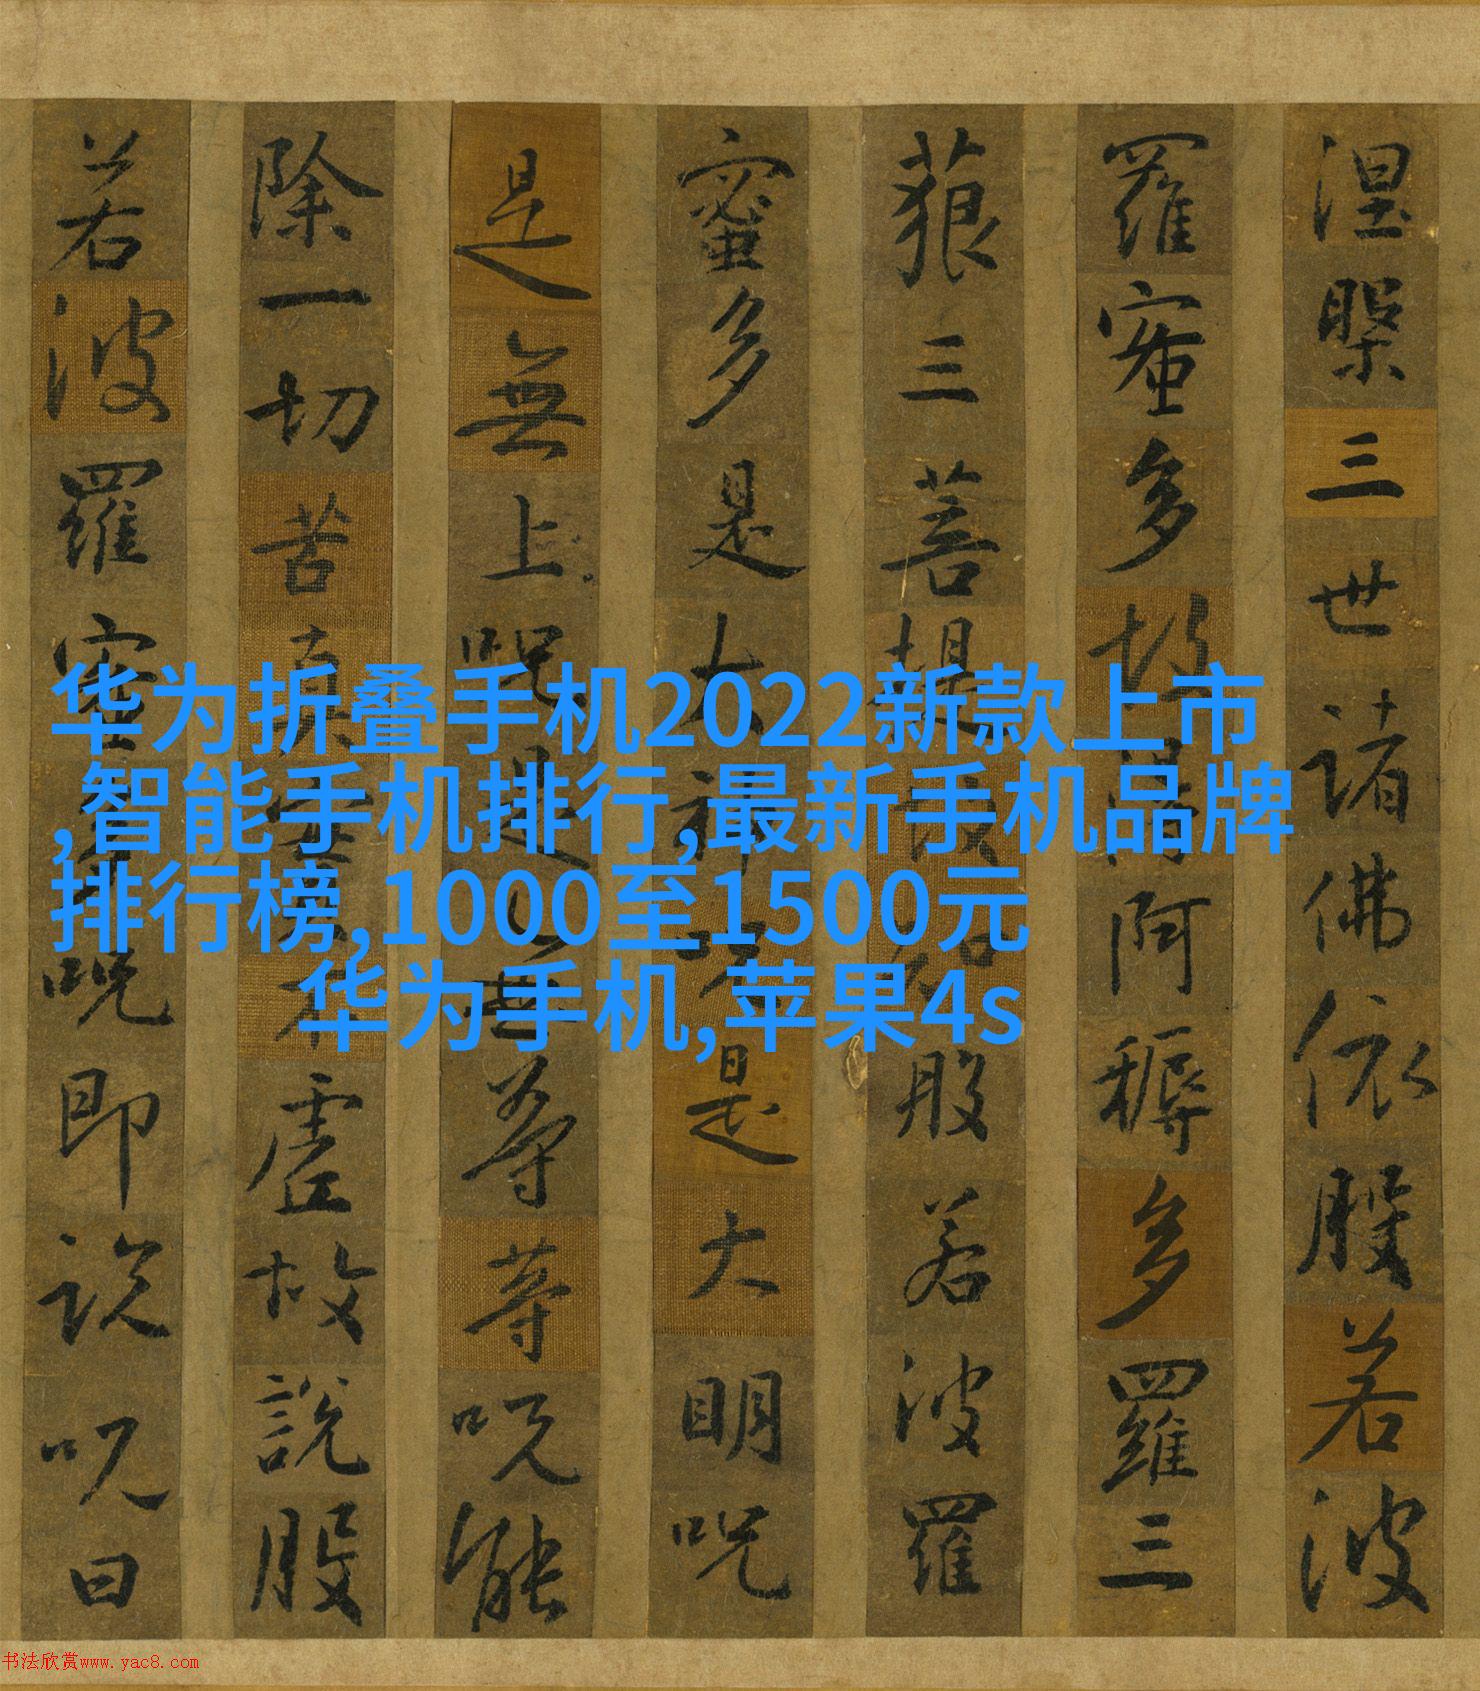 涅槃三世諸佛依般若波
羅蜜多故得阿耨多羅三
藐三菩提故知般若波羅
蜜多是大神呪是大明呪
是無上呪是無等等呪能
除一切苦真實不虛故説般
若波羅蜜多呪即説呪曰
华为折叠手机2022新款上市
,智能手机排行,最新手机品牌
排行榜,1000至1500元
华为手机,苹果4s
书法欣赏www.yac8.com